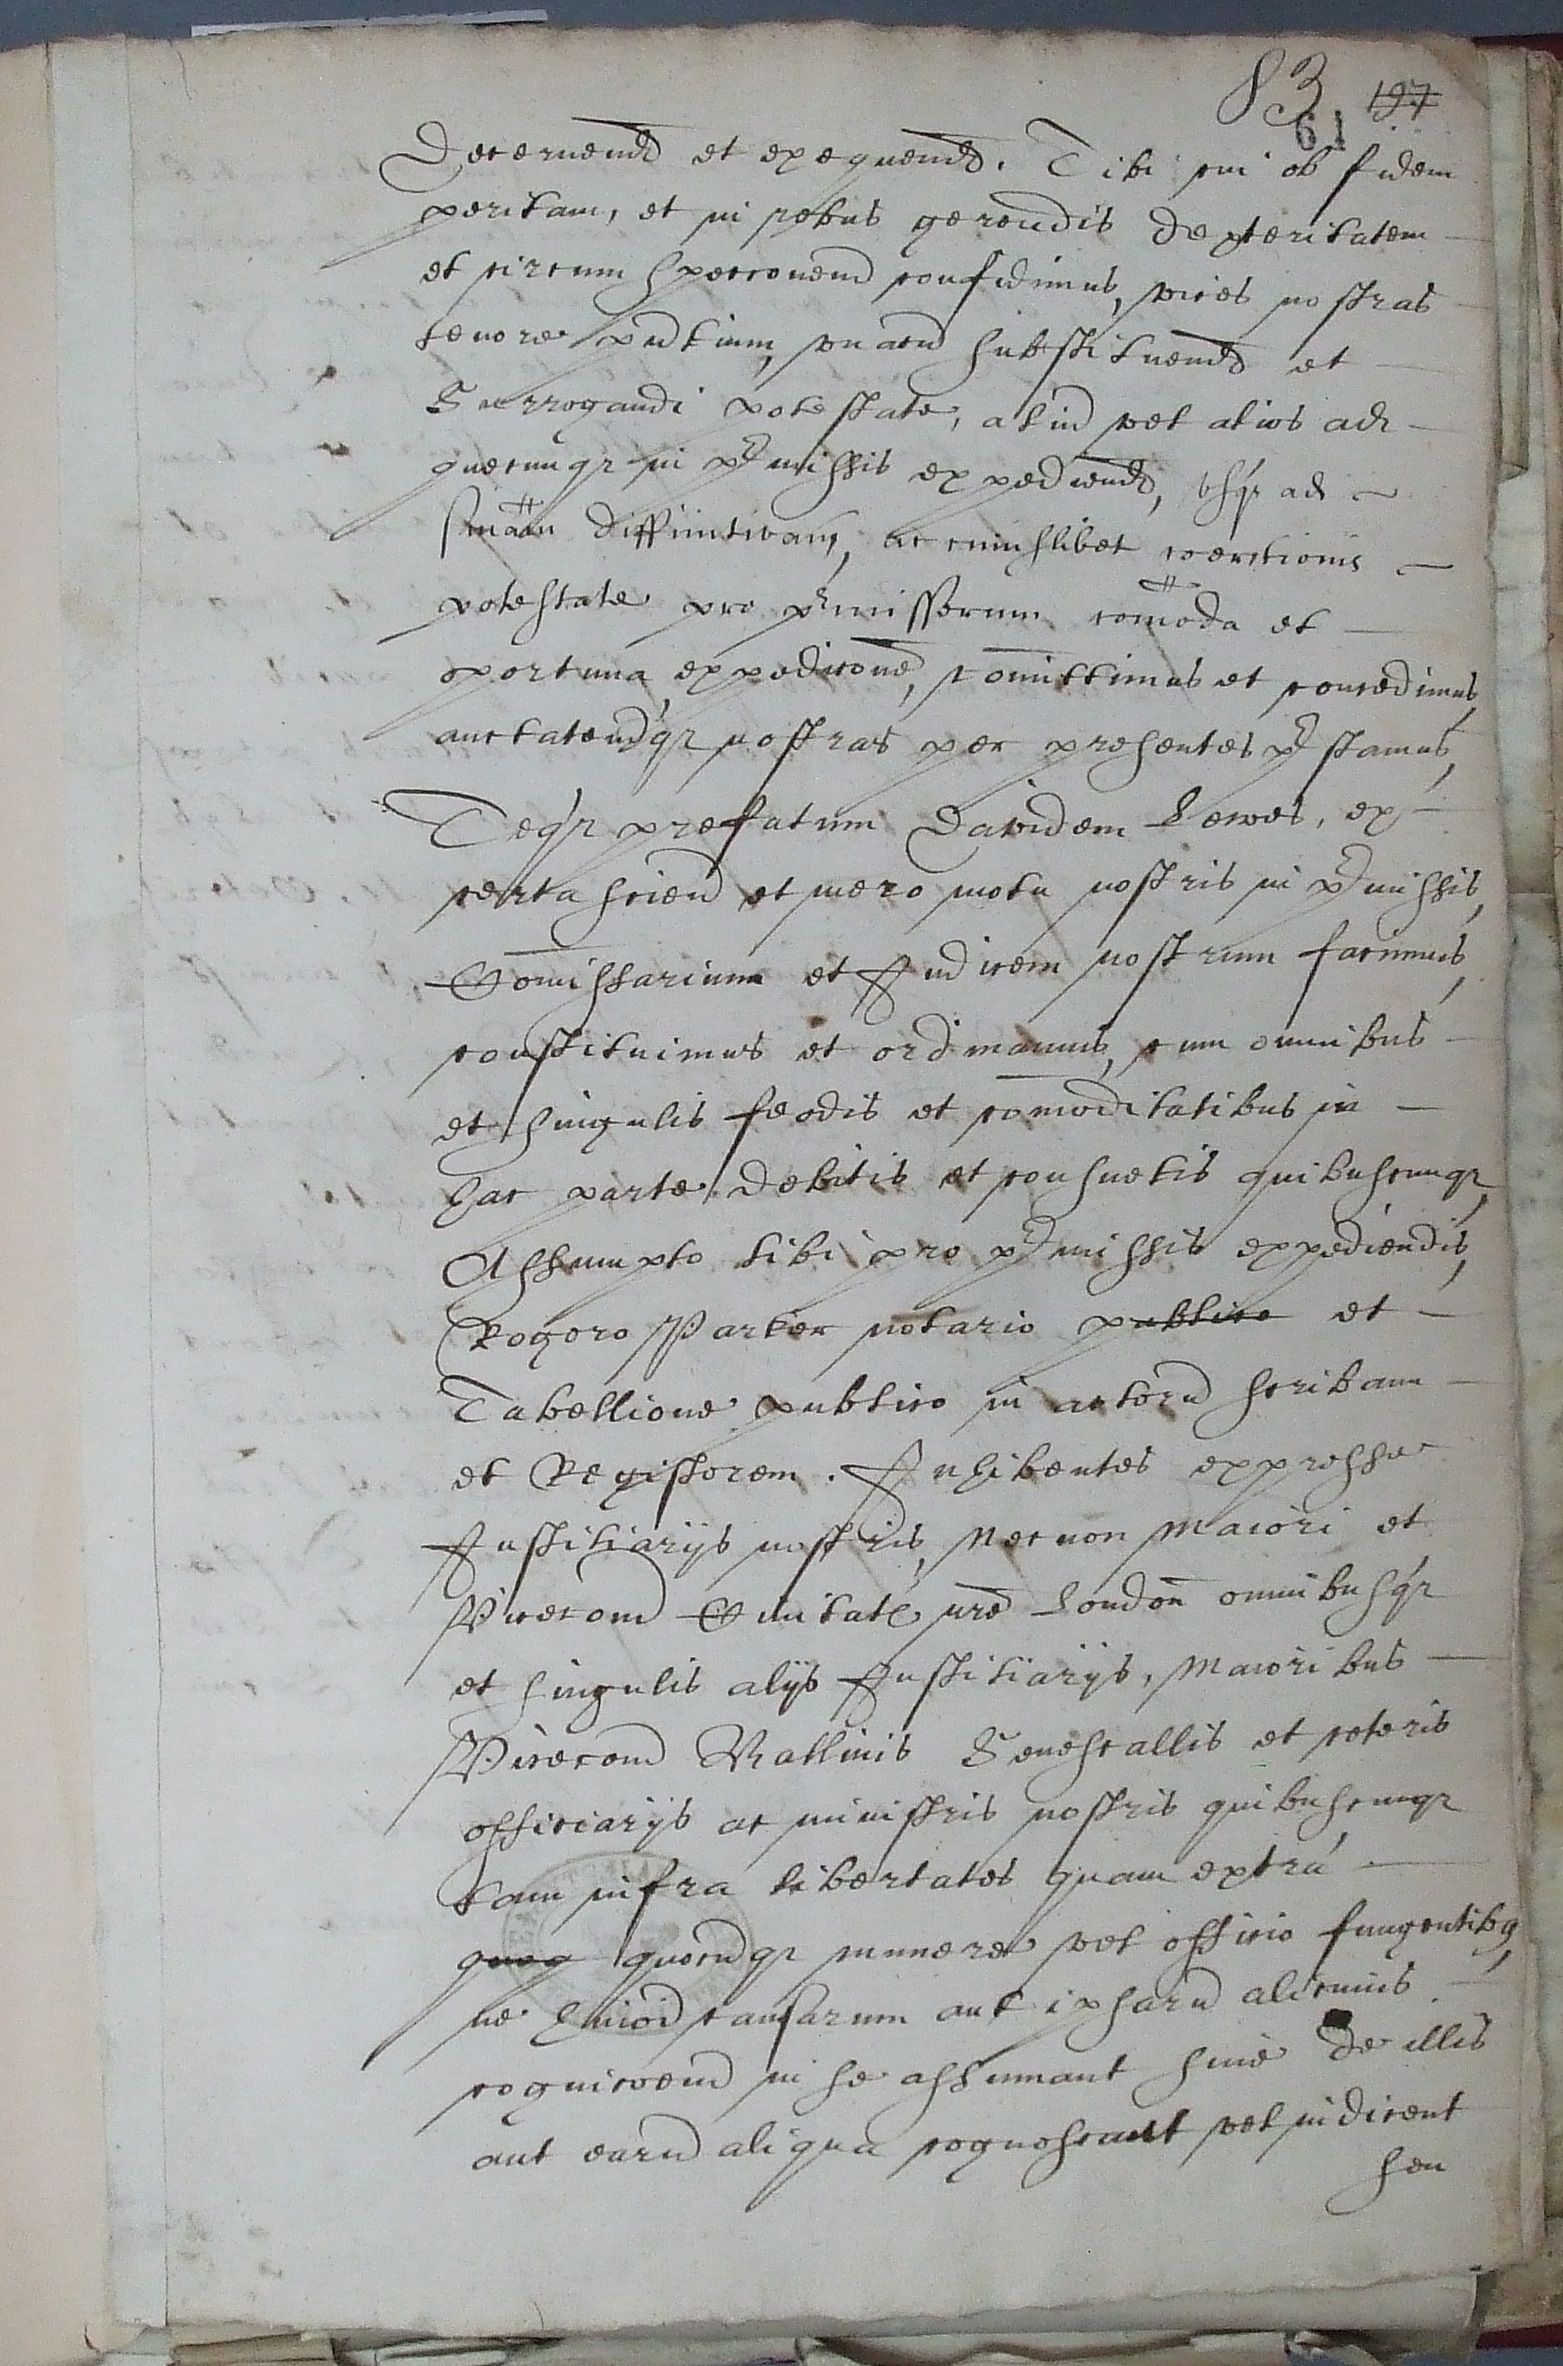 83 197
61
Decernend et exequend. Tibi cui ob fidem
peritam, et in rebus gerendis dexteritatem
et circumspeccionem confidimus, vices nostras
tenore pntium, vnacu substituend et
Surrogandi potestate, aliu vel alios ad
quecunqz in pmissis expediend, vsqz ad
sniam diffinitivam, ac cuiuslibet coerctionis
potestate pro pmissorum comoda et
oportuna expedicone, comittimus et concedimus
auctatemqz nostras per presentes pstamus,
Teqz prefatum Davidem Lewes, ex
certa scien et mero motu nostris in pmissis,
Comissarium et Judicem nostrum facimus,
constituimus et ordinamus, cum omnibus
et singulis feodis et comoditatibus in
hac parte debitis et consuetis quibuscunqz,
Assumpto tibi pro pmissis expediendis,
Rogero Parker notario publico et
Tabellione publico in actoru scribam
et Registorem. Inhibentes expresse
Justitiarijs nostris, Necnon Maiori et
Vicecom Civitat nre London omnibusqz
et singulis alijs Justitiarijs, Maioribus
Vicecom Ballivis Senescallis et ceteris
officiarijs ac ministris nostris quibuscunqz
tam infra libertates quam extra
quocuqz munere vel officio fungentibz,
ne huiod causarum aut ipsaru alicuius
cognicoem in se assumant sive de illis
aut earu aliqua cognoscant vel iudicent
seu